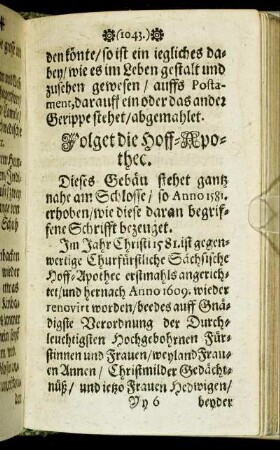 (1043.)
den könte/ so ist ein iegliches da-
bey/ wie es im Leben gestalt und
zusehen gewesen/ auffs Posta-
ment, darauff ein oder das ander
Gerippe stehet/ abgemahlet.
Folget die Hoff-Apo-
thec.
Dieses Gebäu stehet gantz
nahe am Schlosse/ so Anno 1581.
erhoben/ wie diese daran begrif-
fene Schrifft bezeuget.
Im Jahr Christi 1581. ist gegen-
wertige Churfürstliche Sächsische
Hoff-Apothec erstmahls angerich-
tet/ und hernach Anno 1609. wieder
renovirt worden/ beedes auff Gnä-
digste Verordnung der Durch-
leuchtigsten Hochgebohrnen Für-
stinnen und Frauen/ weyland Frau-
en Annen/ Christmilder Gedächt-
nüß/ und ietzo Frauen Hedwigen/
Yy 6 beyder